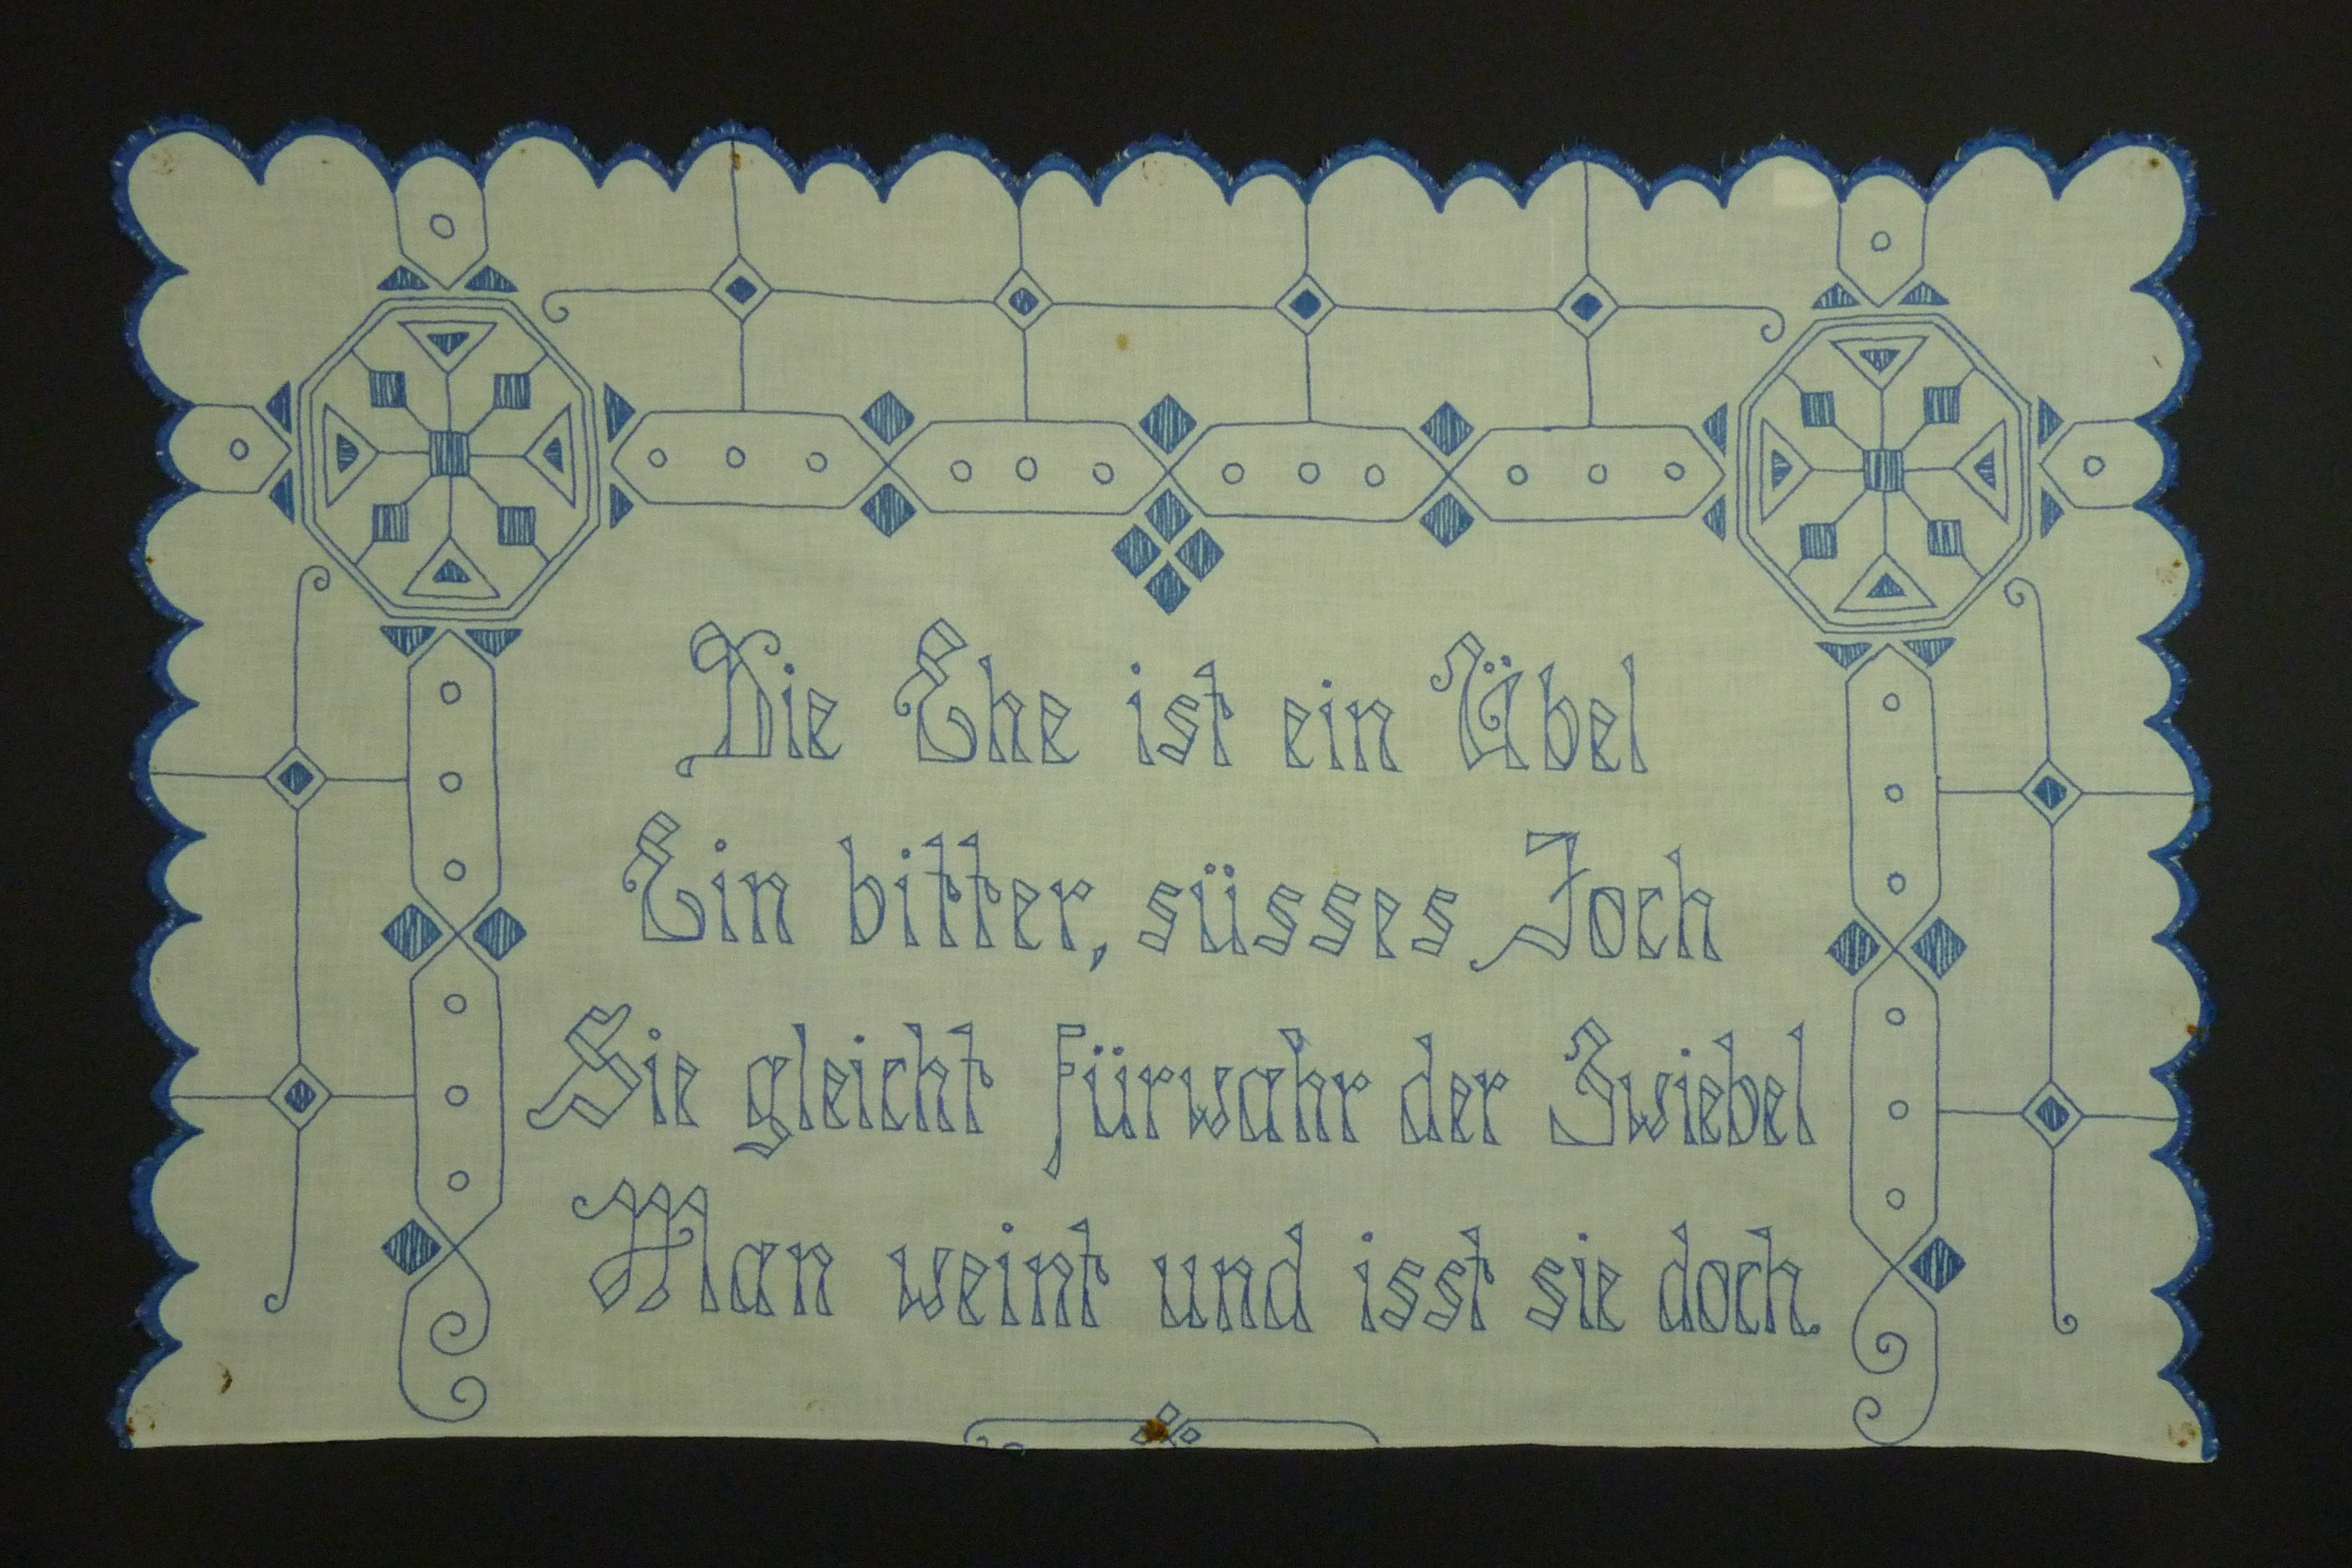 Die Ehe ist ein Übel
Ein bitter, süsses Joch
Sie gleicht fürwahr der Zwiebel
Man weint und isst sie doch.